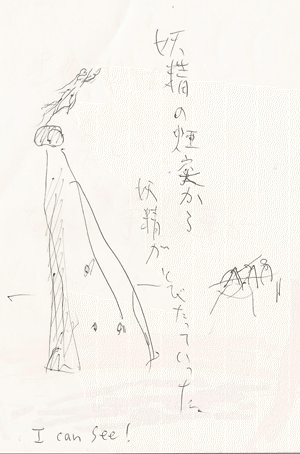 妖精の煙突から
妖精がとびたっていった。
I can see!